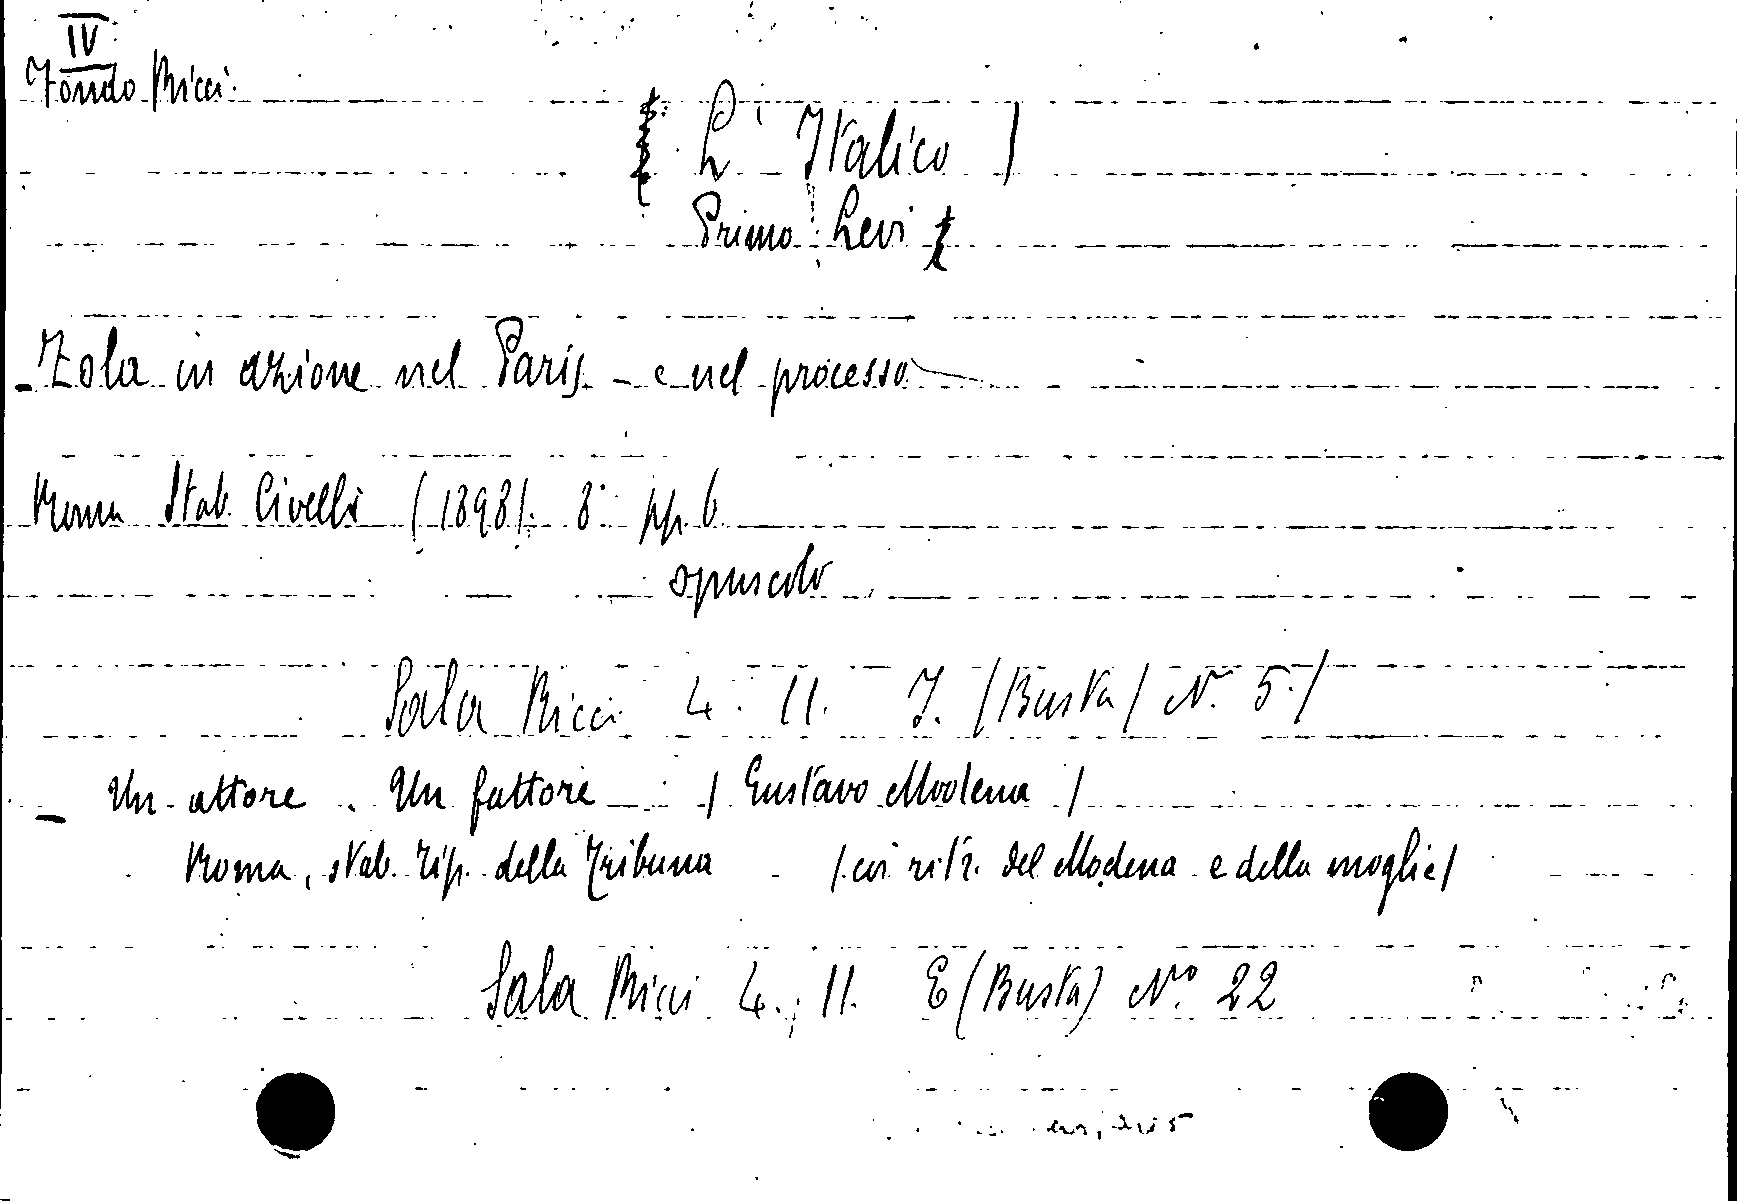 IV
Fondo Ricci
L'Italico )
Primo Levi
- Zola in azione nel Paris - e nel processo
Roma Stab. Civelli (1898). 8° pp. 6
opuscolo
Sala Ricci 4. 11. I. (Busta) N. 5.)
- Un attore . Un fattore ( Gustavo Modena )
Roma, stab. tip. della Tribuna (coi ritr. del Modena e della moglie)
Sala Ricci 4. 11. E (Busta) N° 22